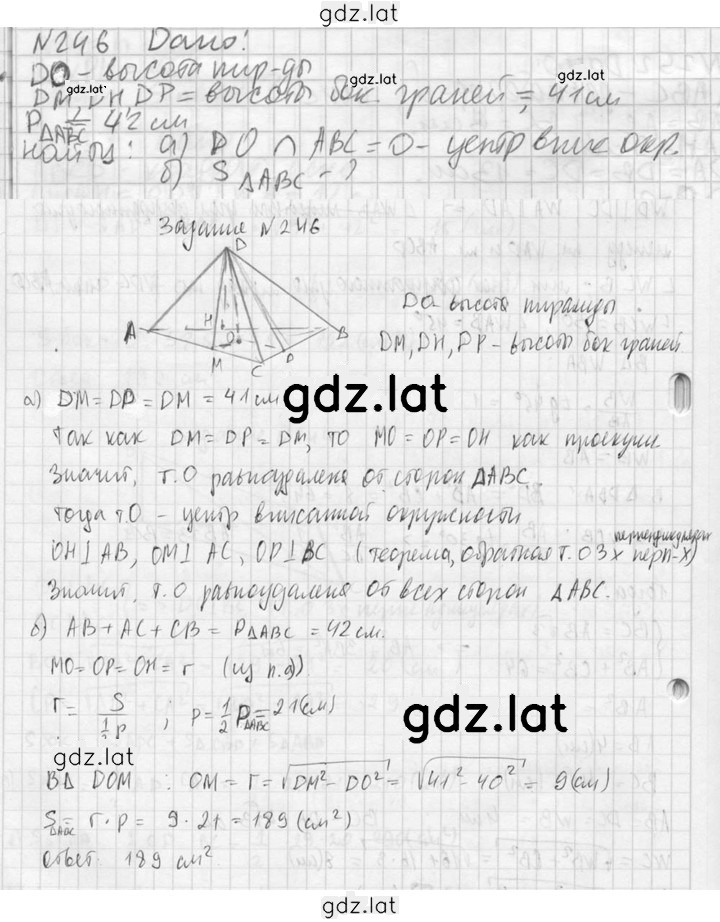 gdz.lat
N246 Дано:
DO - высота пир-ды
gdz.lat
DM, DH, DP = высоты бок. граней = 41 см
P△ABC = 42 см
Найти: а) DO ∩ ABC = O - центр впис окр.
б) S△ABC - ?
Задание N246
D
A H O B
M C P
DO высота пирамиды
DM, DH, DP - высоты бок граней
а) DM = DP = DM = 41 см
gdz.lat
Так как DM = DP = DM, то MO = OP = OH как проекции
Значит, т. O равноудалена от сторон △ABC.
Тогда т.O - центр вписанной окружности
перпендикулярах
OH⊥AB, OM⊥AC, OP⊥BC (теорема, обратная т. о 3х перп-х)
Значит, т.O равноудалена от всех сторон △ABC.
б) AB + AC + CB = P△ABC = 42 см.
MO = OP = OH = r (из п.а)
r = S / ½P , p = ½ P△ABC = 21 (см)
gdz.lat
gdz.lat
В△ DOM : OM = r = √DM² - DO² = √41² - 40² = 9 (см)
S△ABC = r · p = 9 · 21 = 189 (см²)
ответ: 189 см²
gdz.lat